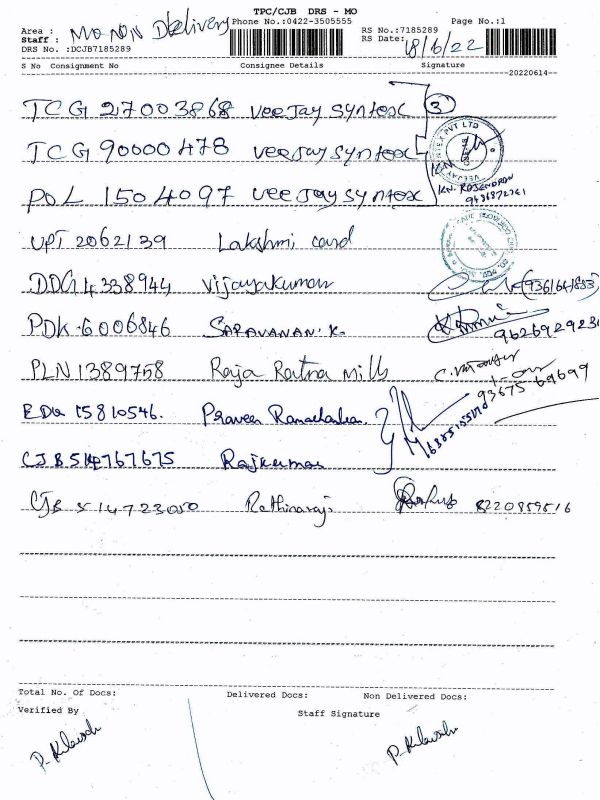 TPC/CJB DRS - MO
Area : MO NON Delivery Phone No.:0422-3505555 Page No.:1
Staff : RS No.:7185289
DRS No. :DCJB7185289 RS Date: 18/6/22
S No Consignment No Consignee Details Signature
20220614
TCG 27003868 veejay syntex 3
TCG 90000478 veejay syntex
POL 1504097 veejay syntex K.N. ROJENDRAN
UPT 2062139 Lakshmi card
DDG 4338944 Vijayakumar (9361641883)
PDK 6006846 SARAVANAN.K. 962692923
PLN 1389758 Raja Ratna mills 93675 69699
EDG 15810546. Praveen
CJB 514767675 Rajkumar
CJB 514723050 Rathinaraj 8220859516
Total No. Of Docs: Delivered Docs: Non Delivered Docs:
Verified By Staff Signature